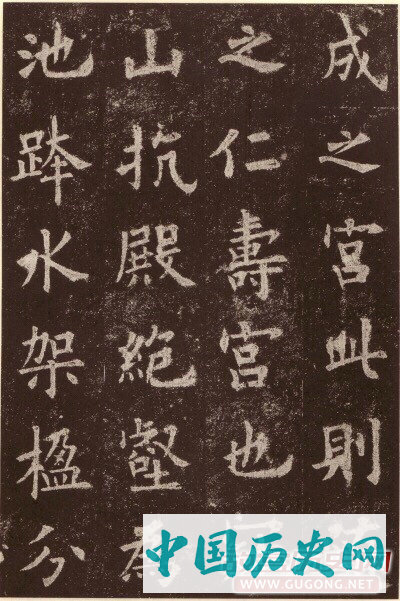 成之宫此則
之仁壽宫也
山抗殿絶壑
池跨水架楹分
中国历史网
WWW.GUGONG.NET